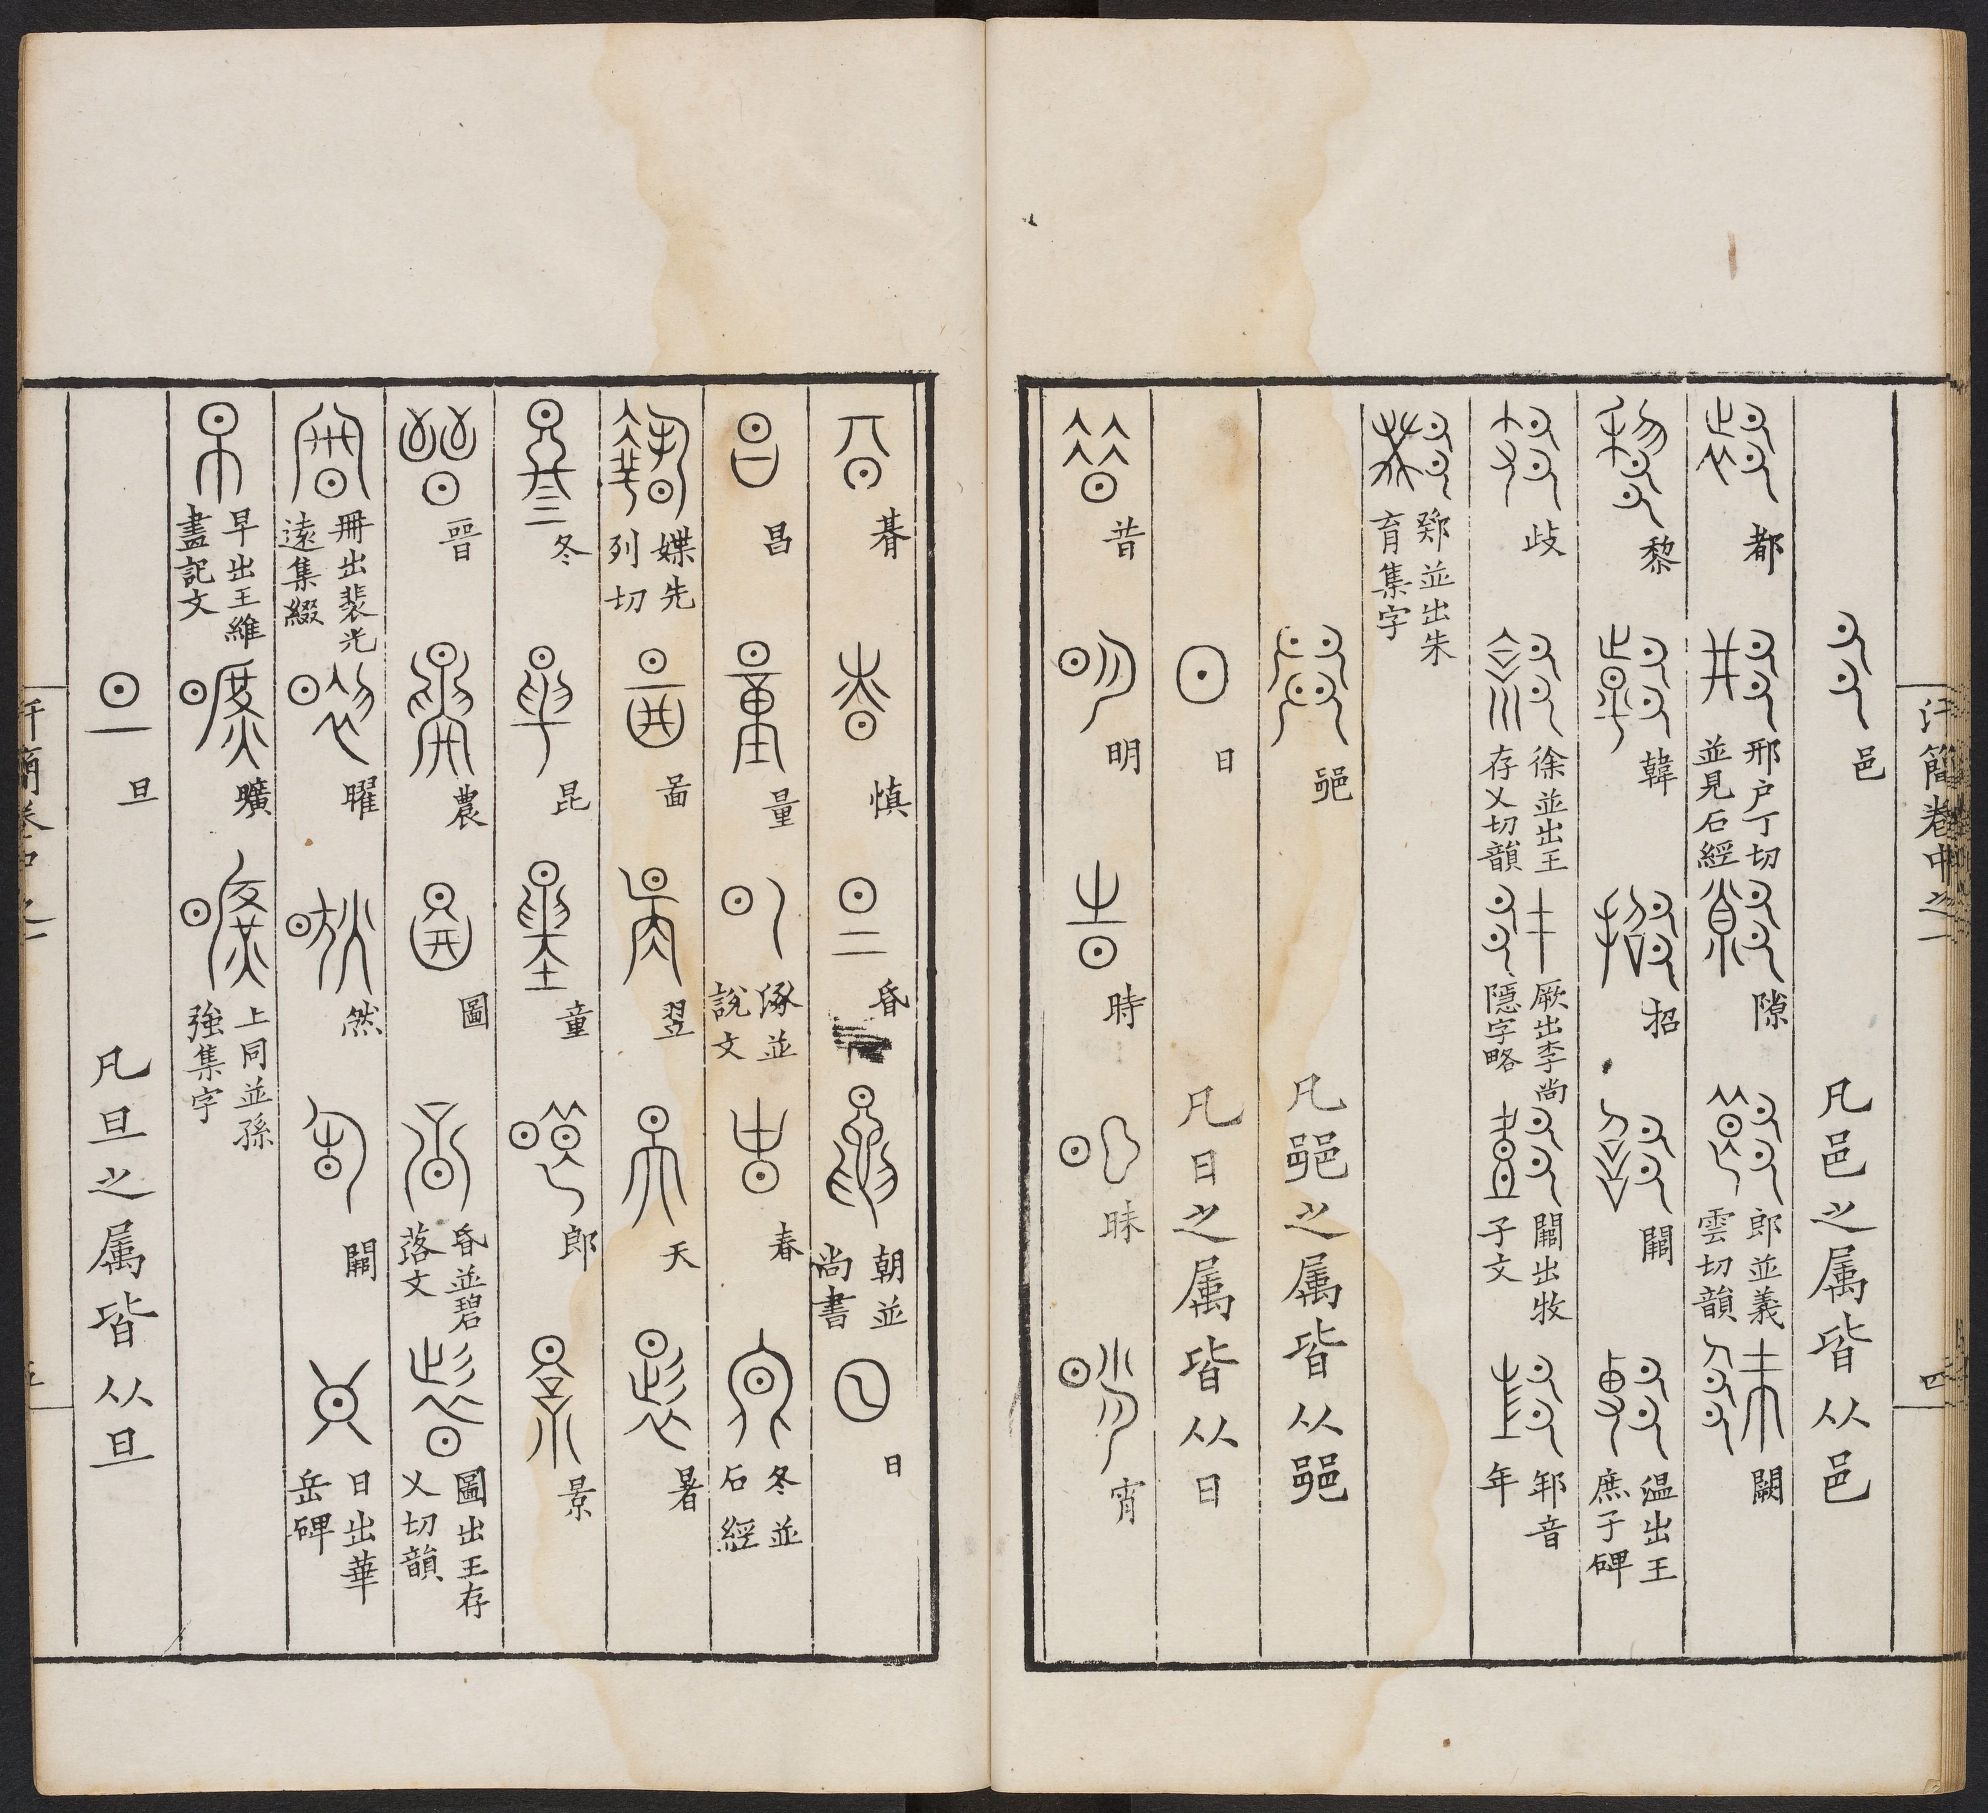 汗簡卷中之一
四
邑 凡邑之属皆从邑
都 邢户丁切並見石經 隙 郎並義雲切韻 闕
黎 韓 招 關 温出王庶子碑
歧 徐並出王存乂切韻 厥出李尚隱字略 關出牧子文 邾音年
鄴並出朱育集字
𨛜 凡𨛜之属皆从𨛜
日 凡日之属皆从日
昔 明 時 昧 宵
朞 慎 昏 朝並尚書 日
昌 量 涿並說文 春 冬並石經
媟先列切 啚 翌 天 暑
冬 昆 童 郎 景
晉 農 圖 昏並碧落文 圖出王存乂切韻
冊出裴光遠集綴 曜 然 關 日出華岳碑
早出王維畫記文 曠 上同並孫強集字
旦 凡旦之属皆从旦
汗簡卷中之一
五